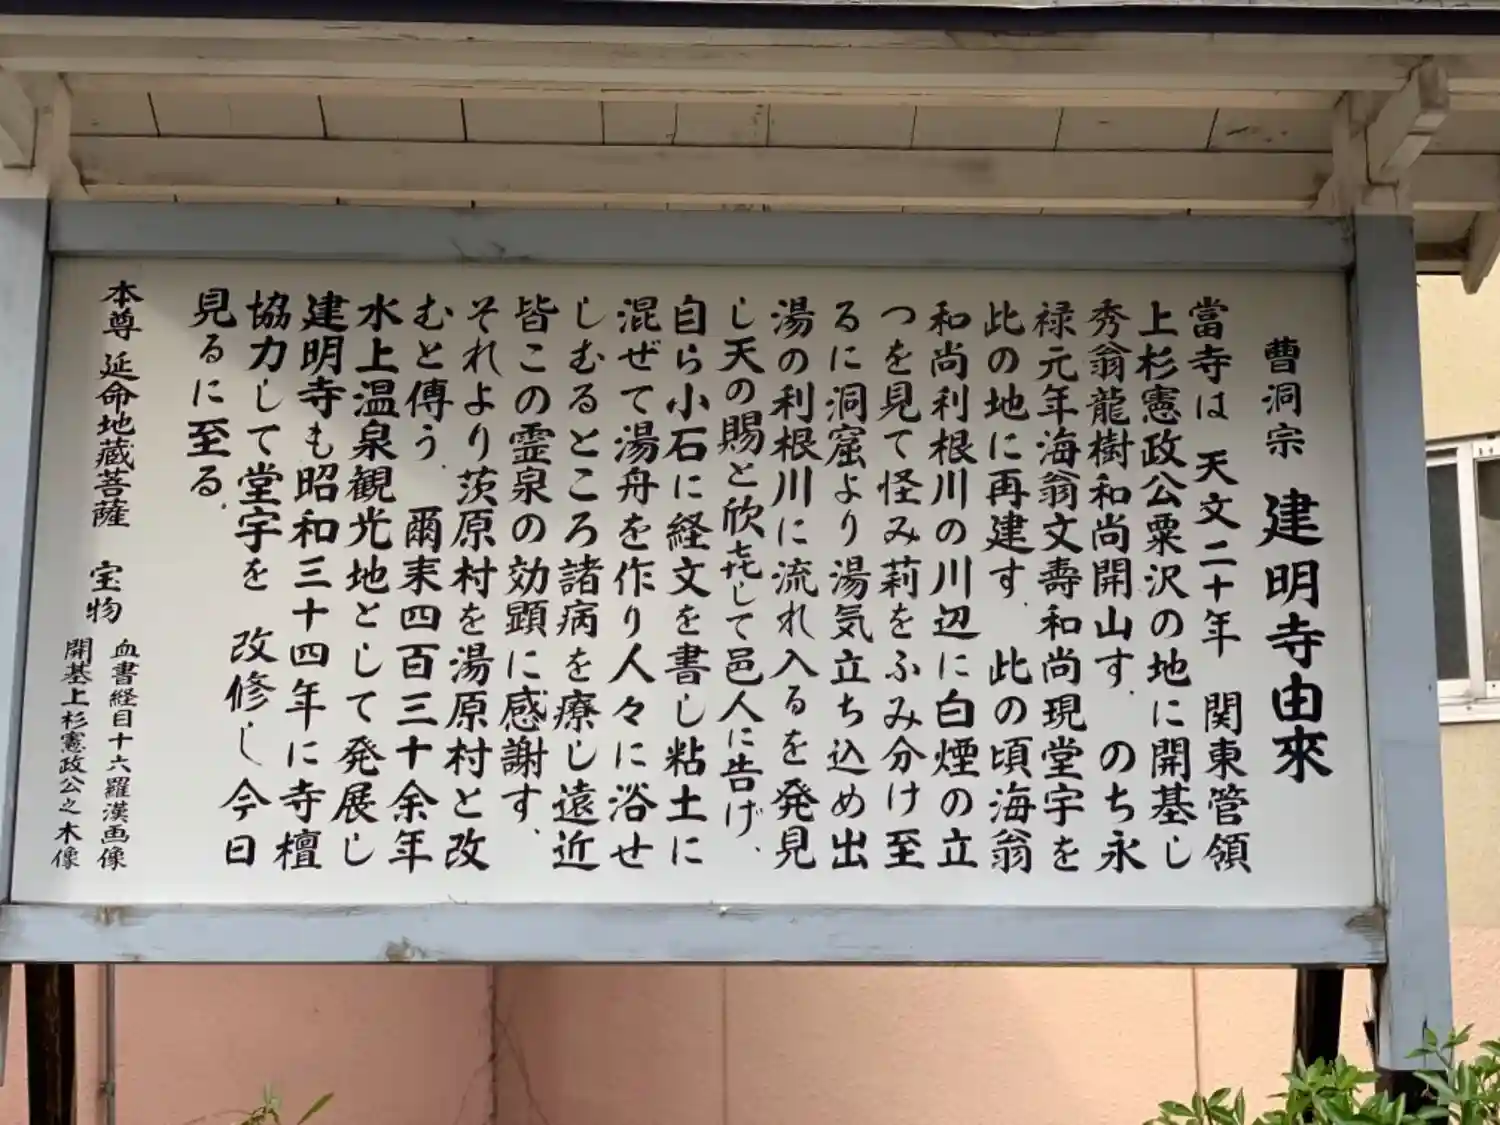 曹洞宗 建明寺由來
當寺は 天文二十年 関東管領
上杉憲政公粟沢の地に開基し
秀翁龍樹和尚開山す.のち永
禄元年海翁文壽和尚現堂宇を
此の地に再建す.此の頃海翁
和尚利根川の川辺に白煙の立
つを見て怪み莉をふみ分け至
るに洞窟より湯気立ち込め出
湯の利根川に流れ入るを発見
し天の賜と欣㐂して邑人に告げ、
自ら小石に経文を書し粘土に
混ぜて湯舟を作り人々に浴せ
しむるところ諸病を療し遠近
皆この霊泉の効顕に感謝す、
それより茨原村を湯原村と改
むと傳う.爾来四百三十余年
水上温泉観光地として発展し
建明寺も昭和三十四年に寺檀
協力して堂宇を 改修し今日
見るに至る.
本尊 延命地蔵菩薩 宝物
血書経目十六羅漢画像
開基上杉憲政公之木像